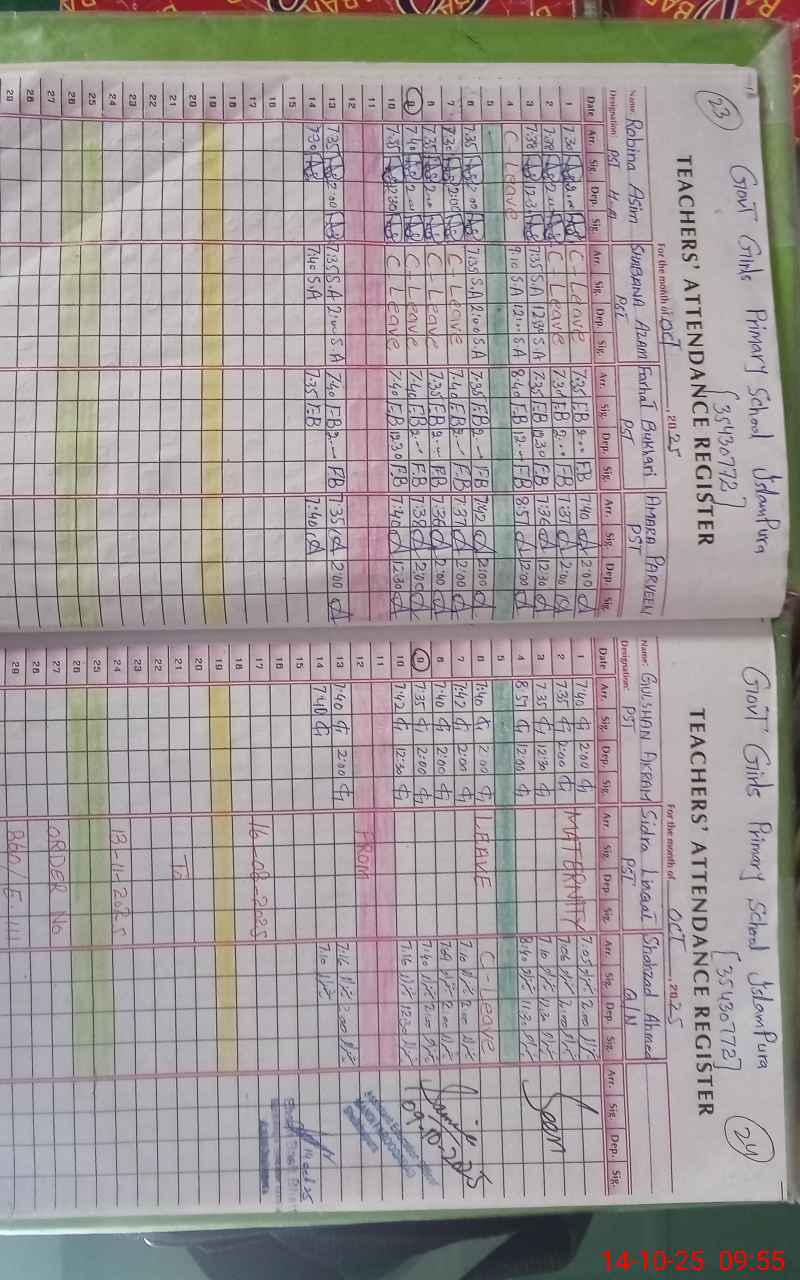 23
Govt Girls Primary School Islampura
[35430772]
TEACHERS' ATTENDANCE REGISTER
For the month of OCT, 2025
Name: Robina Asim SHABANA AZAM Farhat Bukhari AMARA PARVEEN
Designation: PST H.M PST PST PST
Date Arr. Sig. Dep. Sig. Arr. Sig. Dep. Sig. Arr. Sig. Dep. Sig. Arr. Sig. Dep. Sig.
1 7:30 2:00 C-Leave 7:35 F.B 2:00 F.B 7:40 2:00
2 7:38 2:00 C-Leave 7:30 F.B 2:00 F.B 7:37 2:00
3 7:38 12:30 7:35 S.A 12:30 S.A 7:35 F.B 12:30 F.B 7:36 12:30
4 C-Leave 9:10 S.A 12:00 S.A 8:40 F.B 12:00 F.B 8:57 12:00
5
6 7:35 2:00 7:35 S.A 2:00 S.A 7:35 F.B 2:00 F.B 7:42 2:00
7 7:30 2:00 C-Leave 7:40 F.B 2:00 F.B 7:37 2:00
8 7:35 2:00 C-Leave 7:35 F.B 2:00 F.B 7:36 2:00
9 7:40 2:00 C-Leave 7:40 F.B 2:00 F.B 7:38 2:00
10 7:35 12:30 C-Leave 7:40 F.B 12:30 F.B 7:40 12:30
11
12
13 7:35 2:00 7:35 S.A 2:00 S.A 7:40 F.B 2:00 F.B 7:35 2:00
14 7:30 7:40 S.A 7:35 F.B 7:40
15
16
17
18
19
20
21
22
23
24
25
26
27
28
29
24
Govt Girls Primary School Islampura
[35430772]
TEACHERS' ATTENDANCE REGISTER
For the month of OCT, 2025
Name: GULSHAN AKRAM Sidra Liaqat Shahzad Ahmed
Designation: PST PST
Date Arr. Sig. Dep. Sig. Arr. Sig. Dep. Sig. Arr. Sig. Dep. Sig. Arr. Sig. Dep. Sig.
1 7:40 2:00 MATERNITY 7:05 2:00
2 7:35 2:00 7:06 2:00
3 7:35 12:30 7:10 12:30
4 8:57 12:00 8:40 11:30
5
6 7:40 2:00 LEAVE C-Leave
7 7:42 2:00 7:10 2:00
8 7:40 2:00 7:09 2:00
9 7:35 2:00 7:40 2:00
10 7:42 12:30 7:16 12:30
11
12 FROM
13 7:40 2:00 7:16 2:00
14 7:40 7:10
15
16
17 16-08-2025
18
19
20
21 To
22
23
24 13-11-2025
25
26
27 ORDER NO
28
29 860/E-III
Seen
09.10.2025
14 Oct 25
14-10-25 09:55